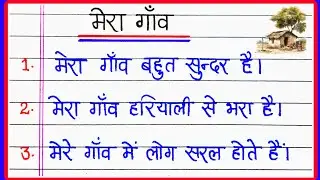 मेरा गाँव
1. मेरा गाँव बहुत सुन्दर है।
2. मेरा गाँव हरियाली से भरा है।
3. मेरे गाँव में लोग सरल होते हैं।